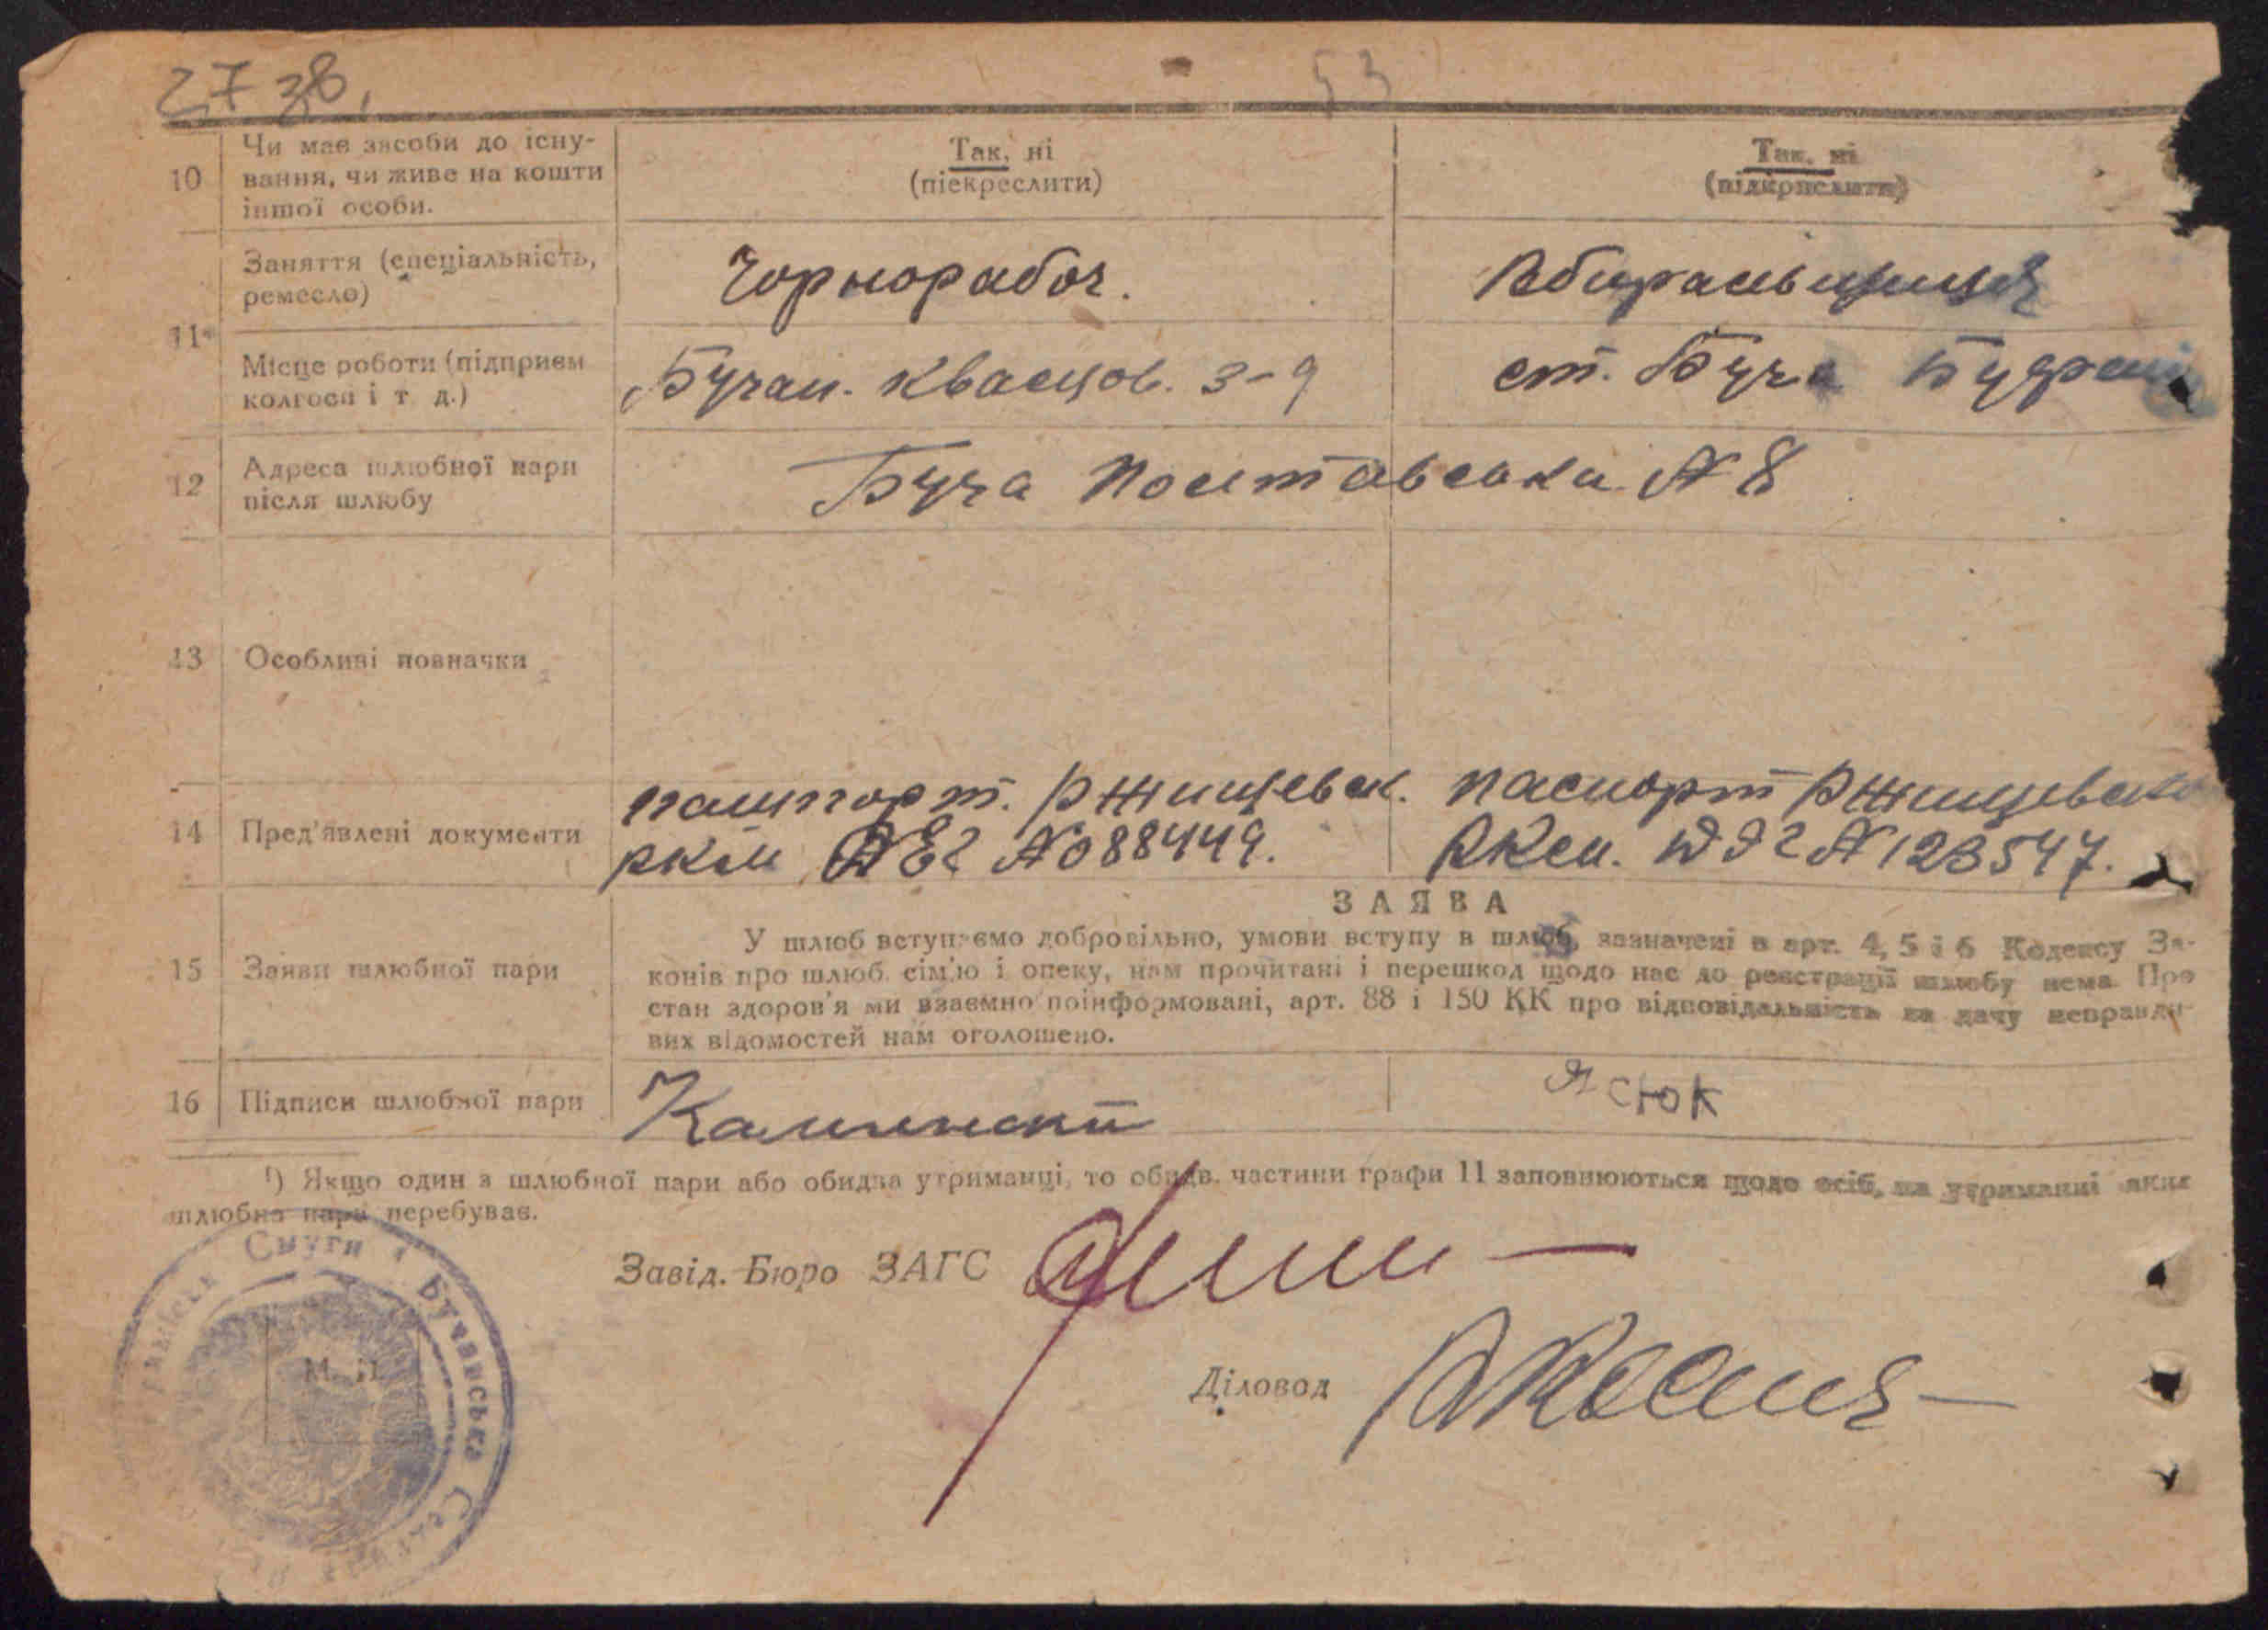 2738.
53
10
Чи має засоби до існу-
вання, чи живе на кошти
іншої особи.
Так, ні
(піекреслити)
Так, ні
(підкреслити)
11
Заняття (спеціальність,
ремесло)
Чорнорабоч.
Вбиральщиця
Місце роботи (підприєм
колгосп і т д.)
Бучан. Квасцов. з-д
ст. Буча
12
Адреса шлюбної пари
після шлюбу
Буча Полтавська № 8
13
Особливі позначки
14
Пред'явлені документи
пашпорт. Ржищевск.
РКМ № 088449.
паспорт Ржищевськ
РКМ. № 123547.
15
Заяви шлюбної пари
ЗАЯВА
У шлюб вступаємо добровільно, умови вступу в шлюб, зазначені в арт. 4, 5 і 6 Кодексу За-
конів про шлюб, сім'ю і опеку, нам прочитані і перешкод щодо нас до реєстрації шлюбу нема. Про
стан здоров'я ми взаємно поінформовані, арт. 88 і 150 КК про відповідальність за дачу неправди-
вих відомостей нам оголошено.
16
Підписи шлюбної пари
Калинский
Ясюк
¹) Якщо один з шлюбної пари або обидва утриманці, то обидв. частини графи 11 заповнюються щодо осіб, на утриманні яких
шлюбна пара перебуває.
Завід. Бюро ЗАГС
Діловод
М. П.
Смуги
Бучанська